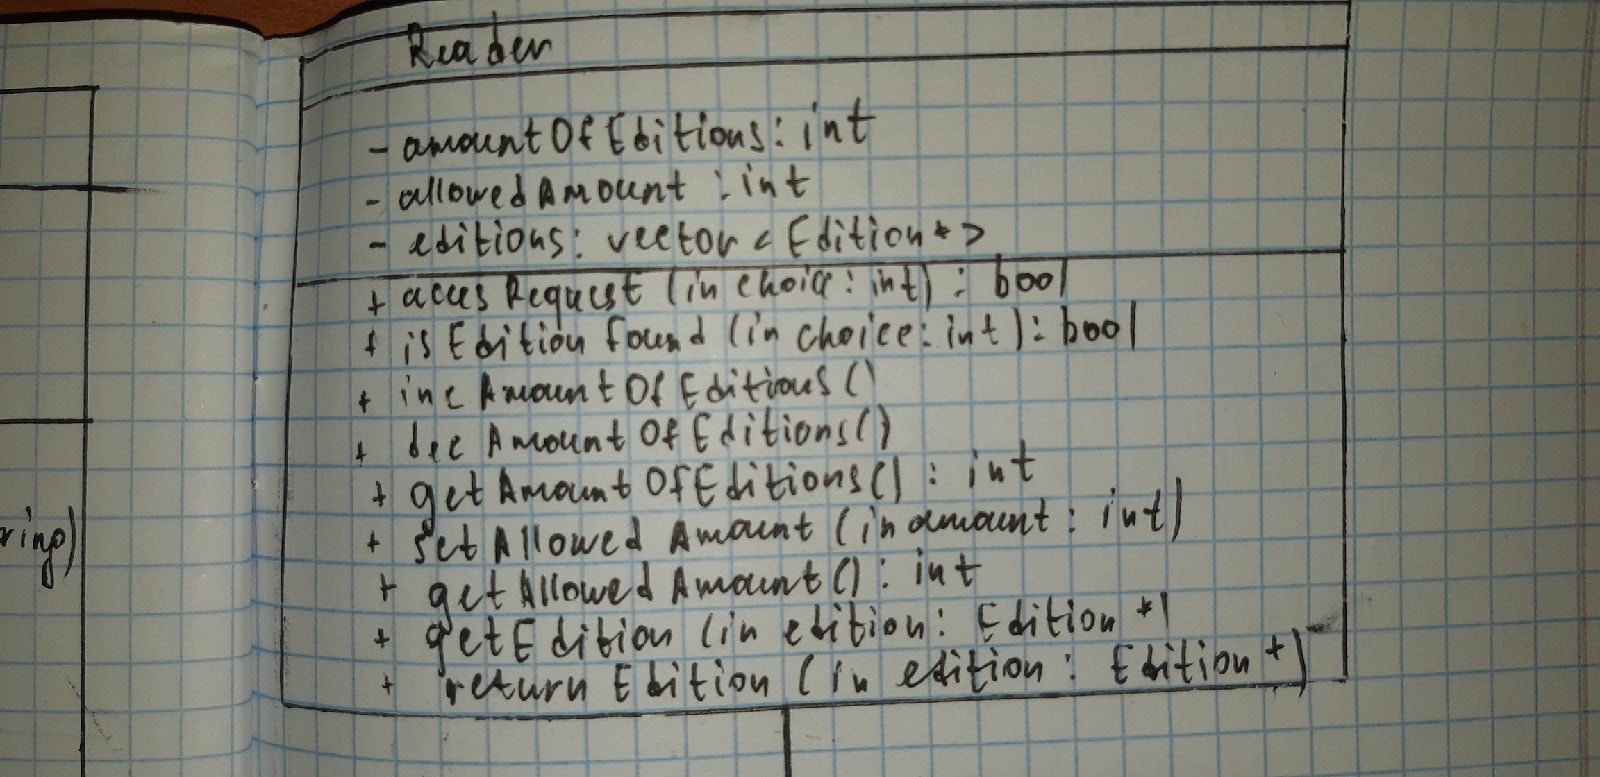 Reader
- amountOfEditions: int
- allowedAmount : int
- editions: vector < Edition * >
+ acces Request (in choice: int) : bool
+ is Edition Found (in choice: int): bool
+ inc Amount Of Editions ()
+ dec Amount Of Editions()
+ get Amount OfEditions() : int
ring)
+ set Allowed Amount (in amount: int)
+ getAllowed Amount() : int
+ getEdition (in edition: Edition *)
+ return Edition (in edition: Edition *)